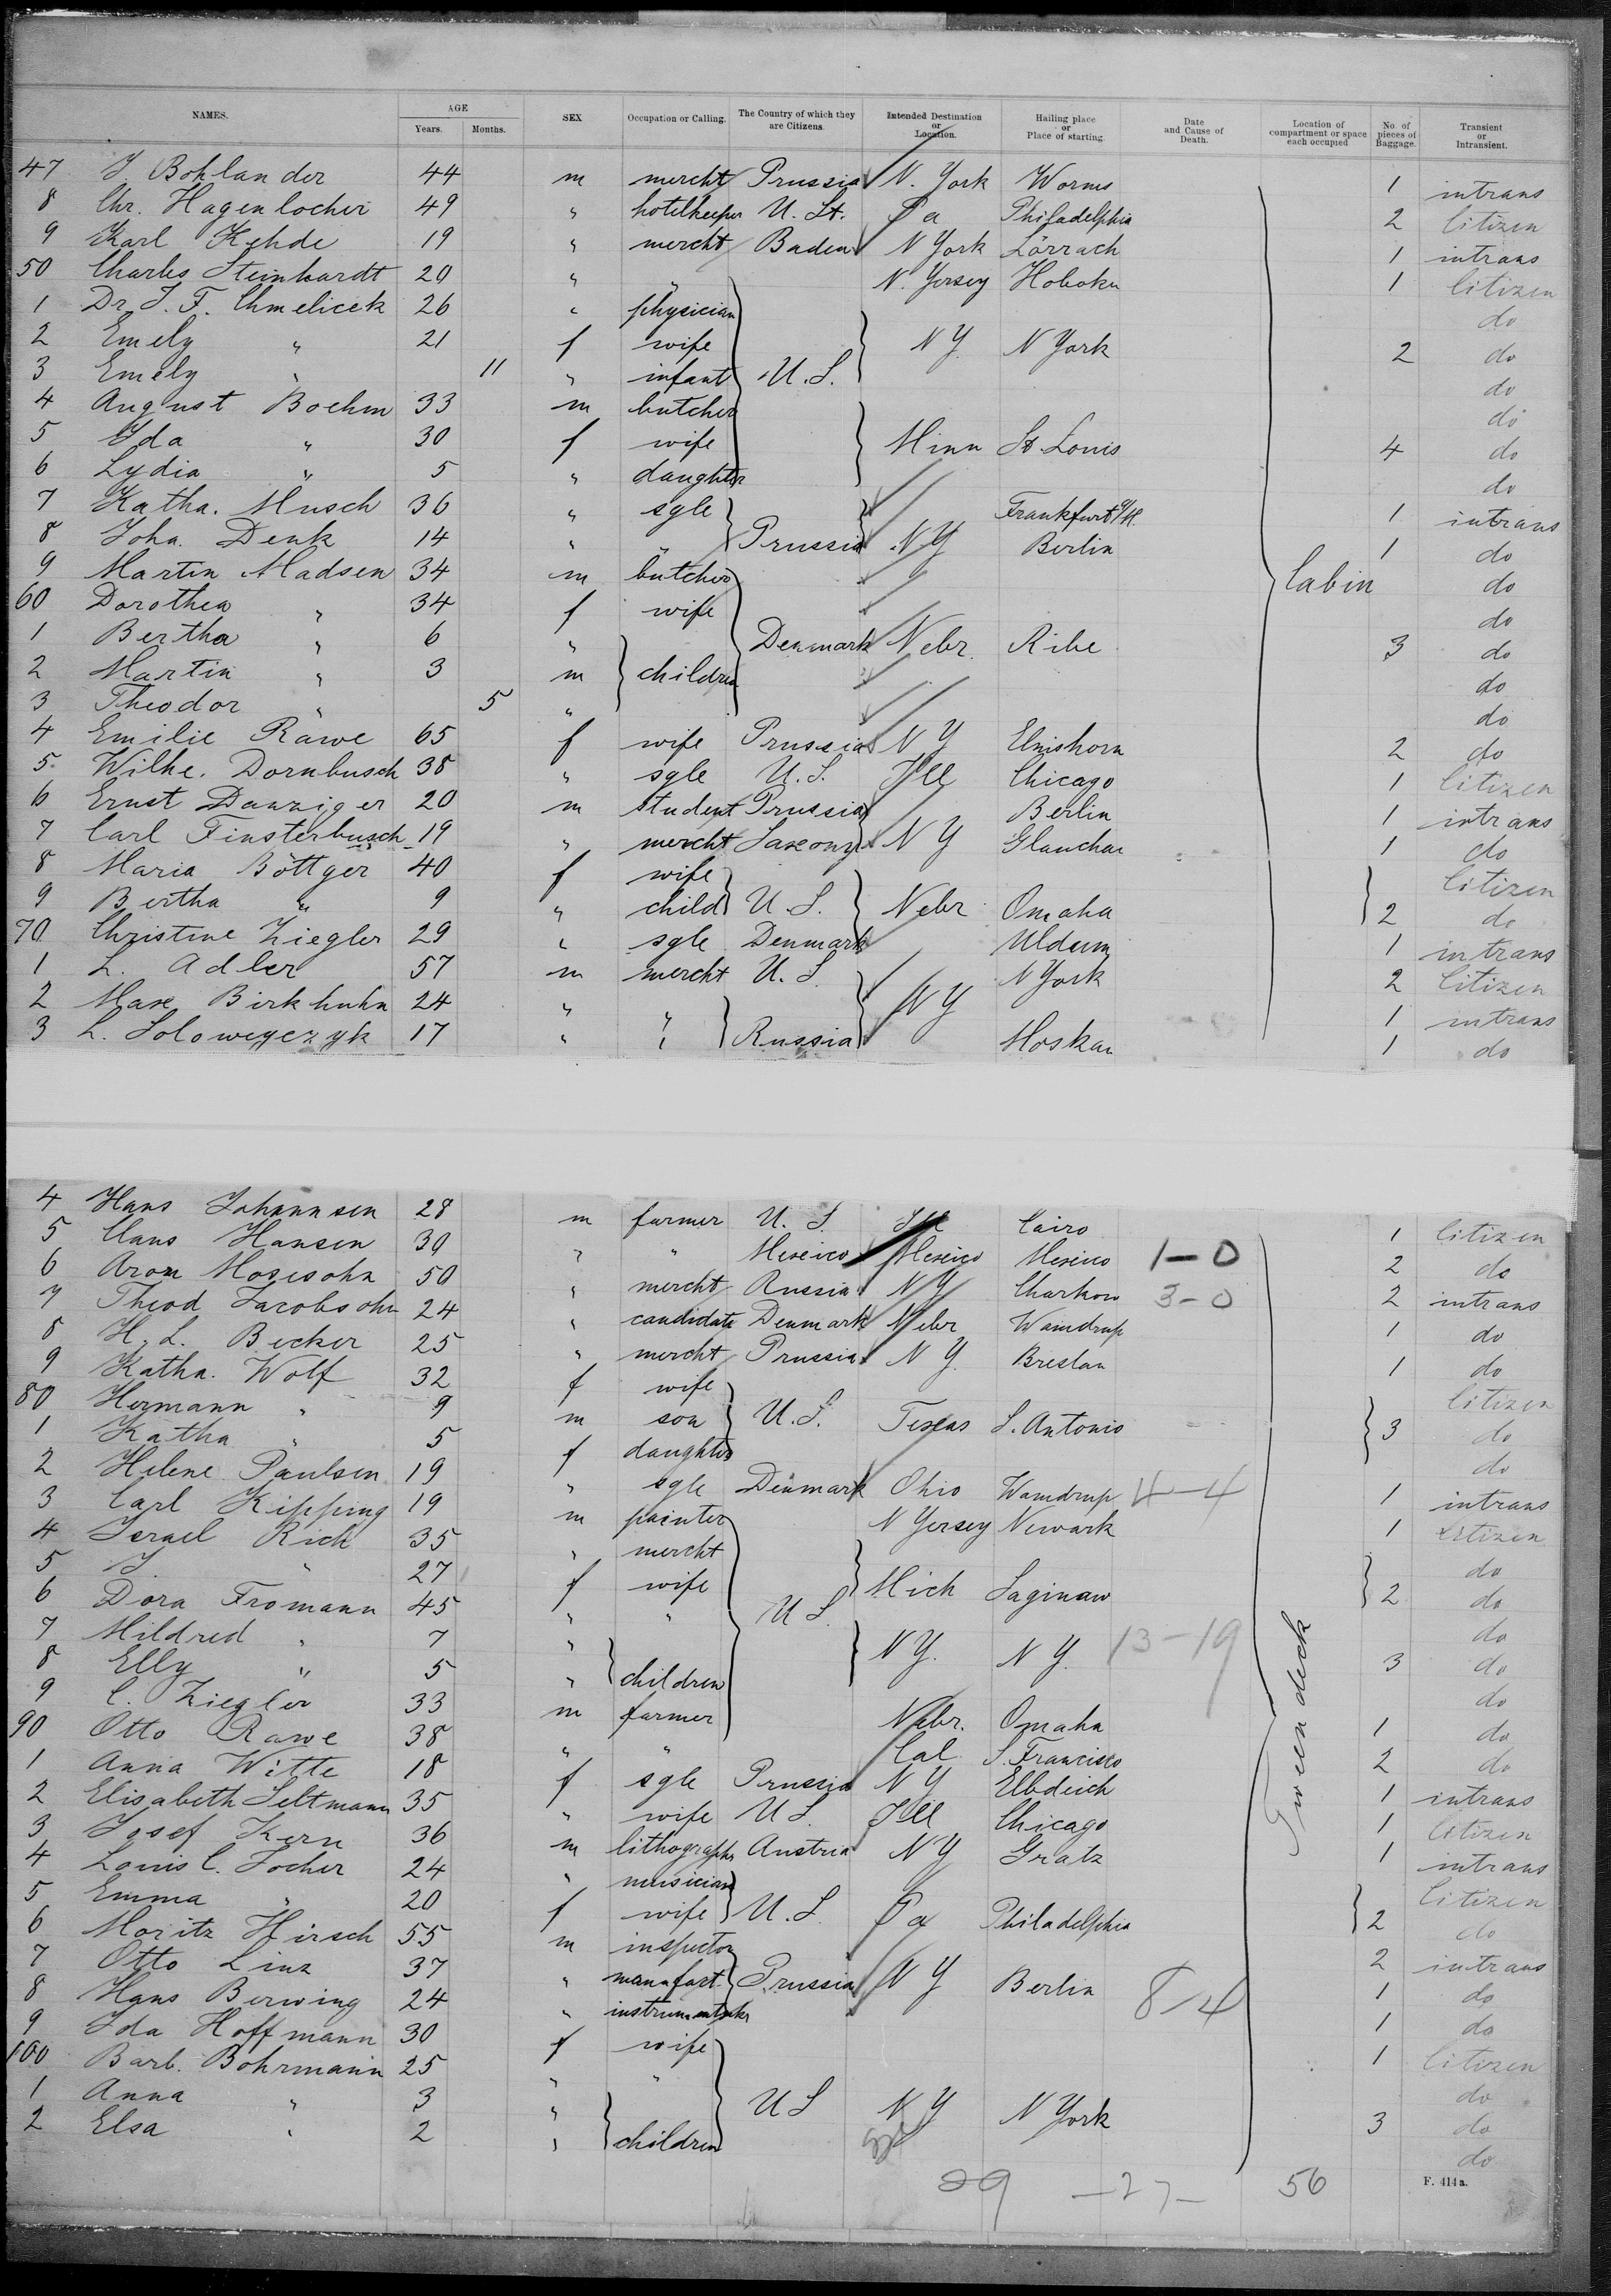 NAMES. AGE Years. Months. SEX Occupation or Calling. The Country of which they are Citizens. Intended Destination or Location. Hailing place or Place of starting. Date and Cause of Death. Location of compartment or space each occupied No. of pieces of Baggage. Transient or Intransient.
47 J. Bohlander 44 m mercht Prussia N. York Worms 1 intrans
8 Chr. Hagenlocher 49 " hotelkeeper U. St. Pa Philadelphia 2 Citizen
9 Karl Kehde 19 " mercht Baden N York Lörrach 1 intrans
50 Charles Steinhardt 20 " " N. Yersey Hoboken 1 Citizen
1 Dr. J. F. Chmelicek 26 " physician do
2 Emely " 21 f wife NY N York 2 do
3 Emely " 11 " infant U.S. do
4 August Boehm 33 m butcher do
5 Ida " 30 f wife Minn St. Louis 4 do
6 Lydia " 5 " daughter do
7 Katha. Musch 36 " sgle Frankfurt a/M. 1 intrans
8 Joha. Denk 14 " " Prussia NY Berlin 1 do
9 Martin Madsen 34 m butcher Cabin do
60 Dorothea " 34 f wife do
1 Bertha " 6 " Denmark Nebr. Ribe 3 do
2 Martin " 3 m children do
3 Theodor " 5 " do
4 Emilie Rawe 65 f wife Prussia NY Elmshorn 2 do
5 Wilhe. Dornbusch 38 " sgle U.S. Ill Chicago 1 Citizen
6 Ernst Danziger 20 m student Prussia Berlin 1 intrans
7 Carl Finsterbusch 19 " mercht Saxony NY Glauchau 1 do
8 Maria Böttger 40 f wife Citizen
9 Bertha " 9 " child U.S. Nebr Omaha 2 do
70 Christine Ziegler 29 " sgle Denmark Uldum 1 intrans
1 L. Adler 57 m mercht U.S. N York 2 Citizen
2 Max Birkhuhn 24 " " NY 1 intrans
3 L. Soloweyczyk 17 " " Russia Moskau 1 do
4 Hans Johannsen 28 m farmer U.S. Ill Cairo 1 Citizen
5 Claus Hansen 39 " " Mexico Mexico Mexico 1-0 2 do
6 Aron Mosesohn 50 " mercht Russia NY Charkow 3-0 2 intrans
7 Theod Jacobsohn 24 " candidate Denmark Nebr Wamdrup 1 do
8 H. L. Becker 25 " mercht Prussia NY. Breslau 1 do
9 Katha. Wolf 32 f wife Citizen
80 Hermann " 9 m son U.S. Texas S. Antonio 3 do
1 Katha " 5 f daughter do
2 Helene Paulsen 19 " sgle Denmark Ohio Wamdrup 4-4 1 intrans
3 Carl Kipping 19 m painter N Yersey Newark 1 Citizen
4 Israel Rich 35 " mercht do
5 J " 27 f wife Mich Saginaw 2 do
6 Dora Fromann 45 " " U S do
7 Mildred " 7 " NY. NY. 13-19 3 do
8 Elly " 5 " children do
9 C. Ziegler 33 m farmer Nebr. Omaha Tween deck 1 do
90 Otto Rawe 38 " " Cal S. Francisco 2 do
1 Anna Witte 18 f sgle Prussia NY Elbdeich 1 intrans
2 Elisabeth Seltmann 35 " wife U S. Ill Chicago 1 Citizen
3 Josef Kern 36 m lithographr Austria NY Gratz 1 intrans
4 Louis C. Jocher 24 " musician Citizen
5 Emma " 20 f wife U.S. Pa Philadelphia 2 do
6 Moritz Hirsch 55 m inspector 2 intrans
7 Otto Linz 37 " manufact. Prussia NY Berlin 8-4 1 do
8 Hans Berwing 24 " 1 do
9 Ida Hoffmann 30 f wife 1 Citizen
100 Barb. Bohrmann 25 " " do
1 Anna " 3 " U S NY N York 3 do
2 Elsa " 2 " children do
29 -27- 56 F. 414 a.